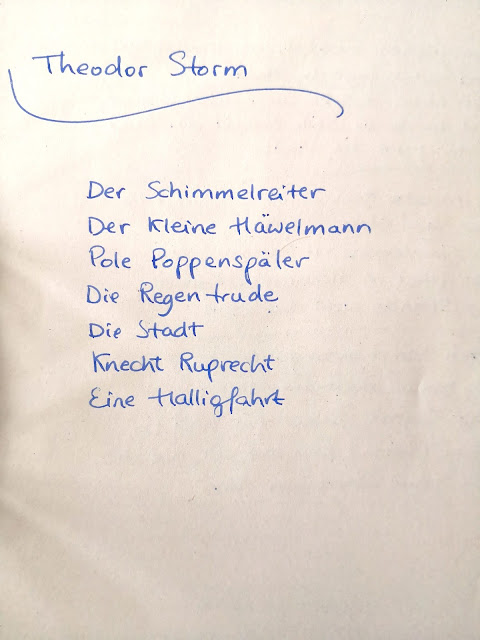 Theodor Storm
Der Schimmelreiter
Der Kleine Häwelmann
Pole Poppenspäler
Die Regentrude
Die Stadt
Knecht Ruprecht
Eine Halligfahrt